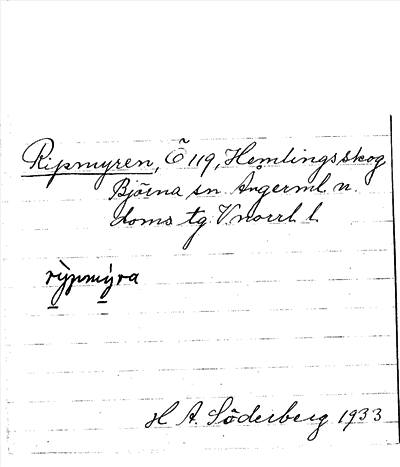 Ripmyren, Ö 119, Hemlingsskog
Björna sn. Ångerml. n.
doms tg V norrl l.
rỳpmýra
H A. Söderberg 1933